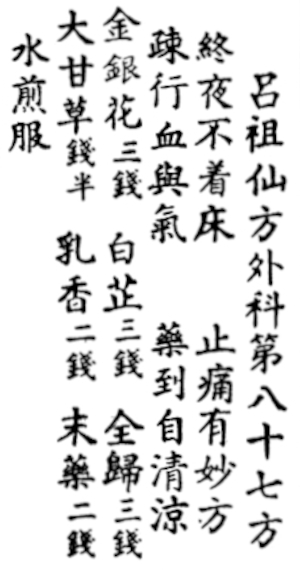 呂祖仙方外科第八十七方
終夜不着床 止痛有妙方
疎行血與氣 藥到自清涼
金銀花三錢 白芷三錢 全歸三錢
大甘草錢半 乳香二錢 末藥二錢
水煎服